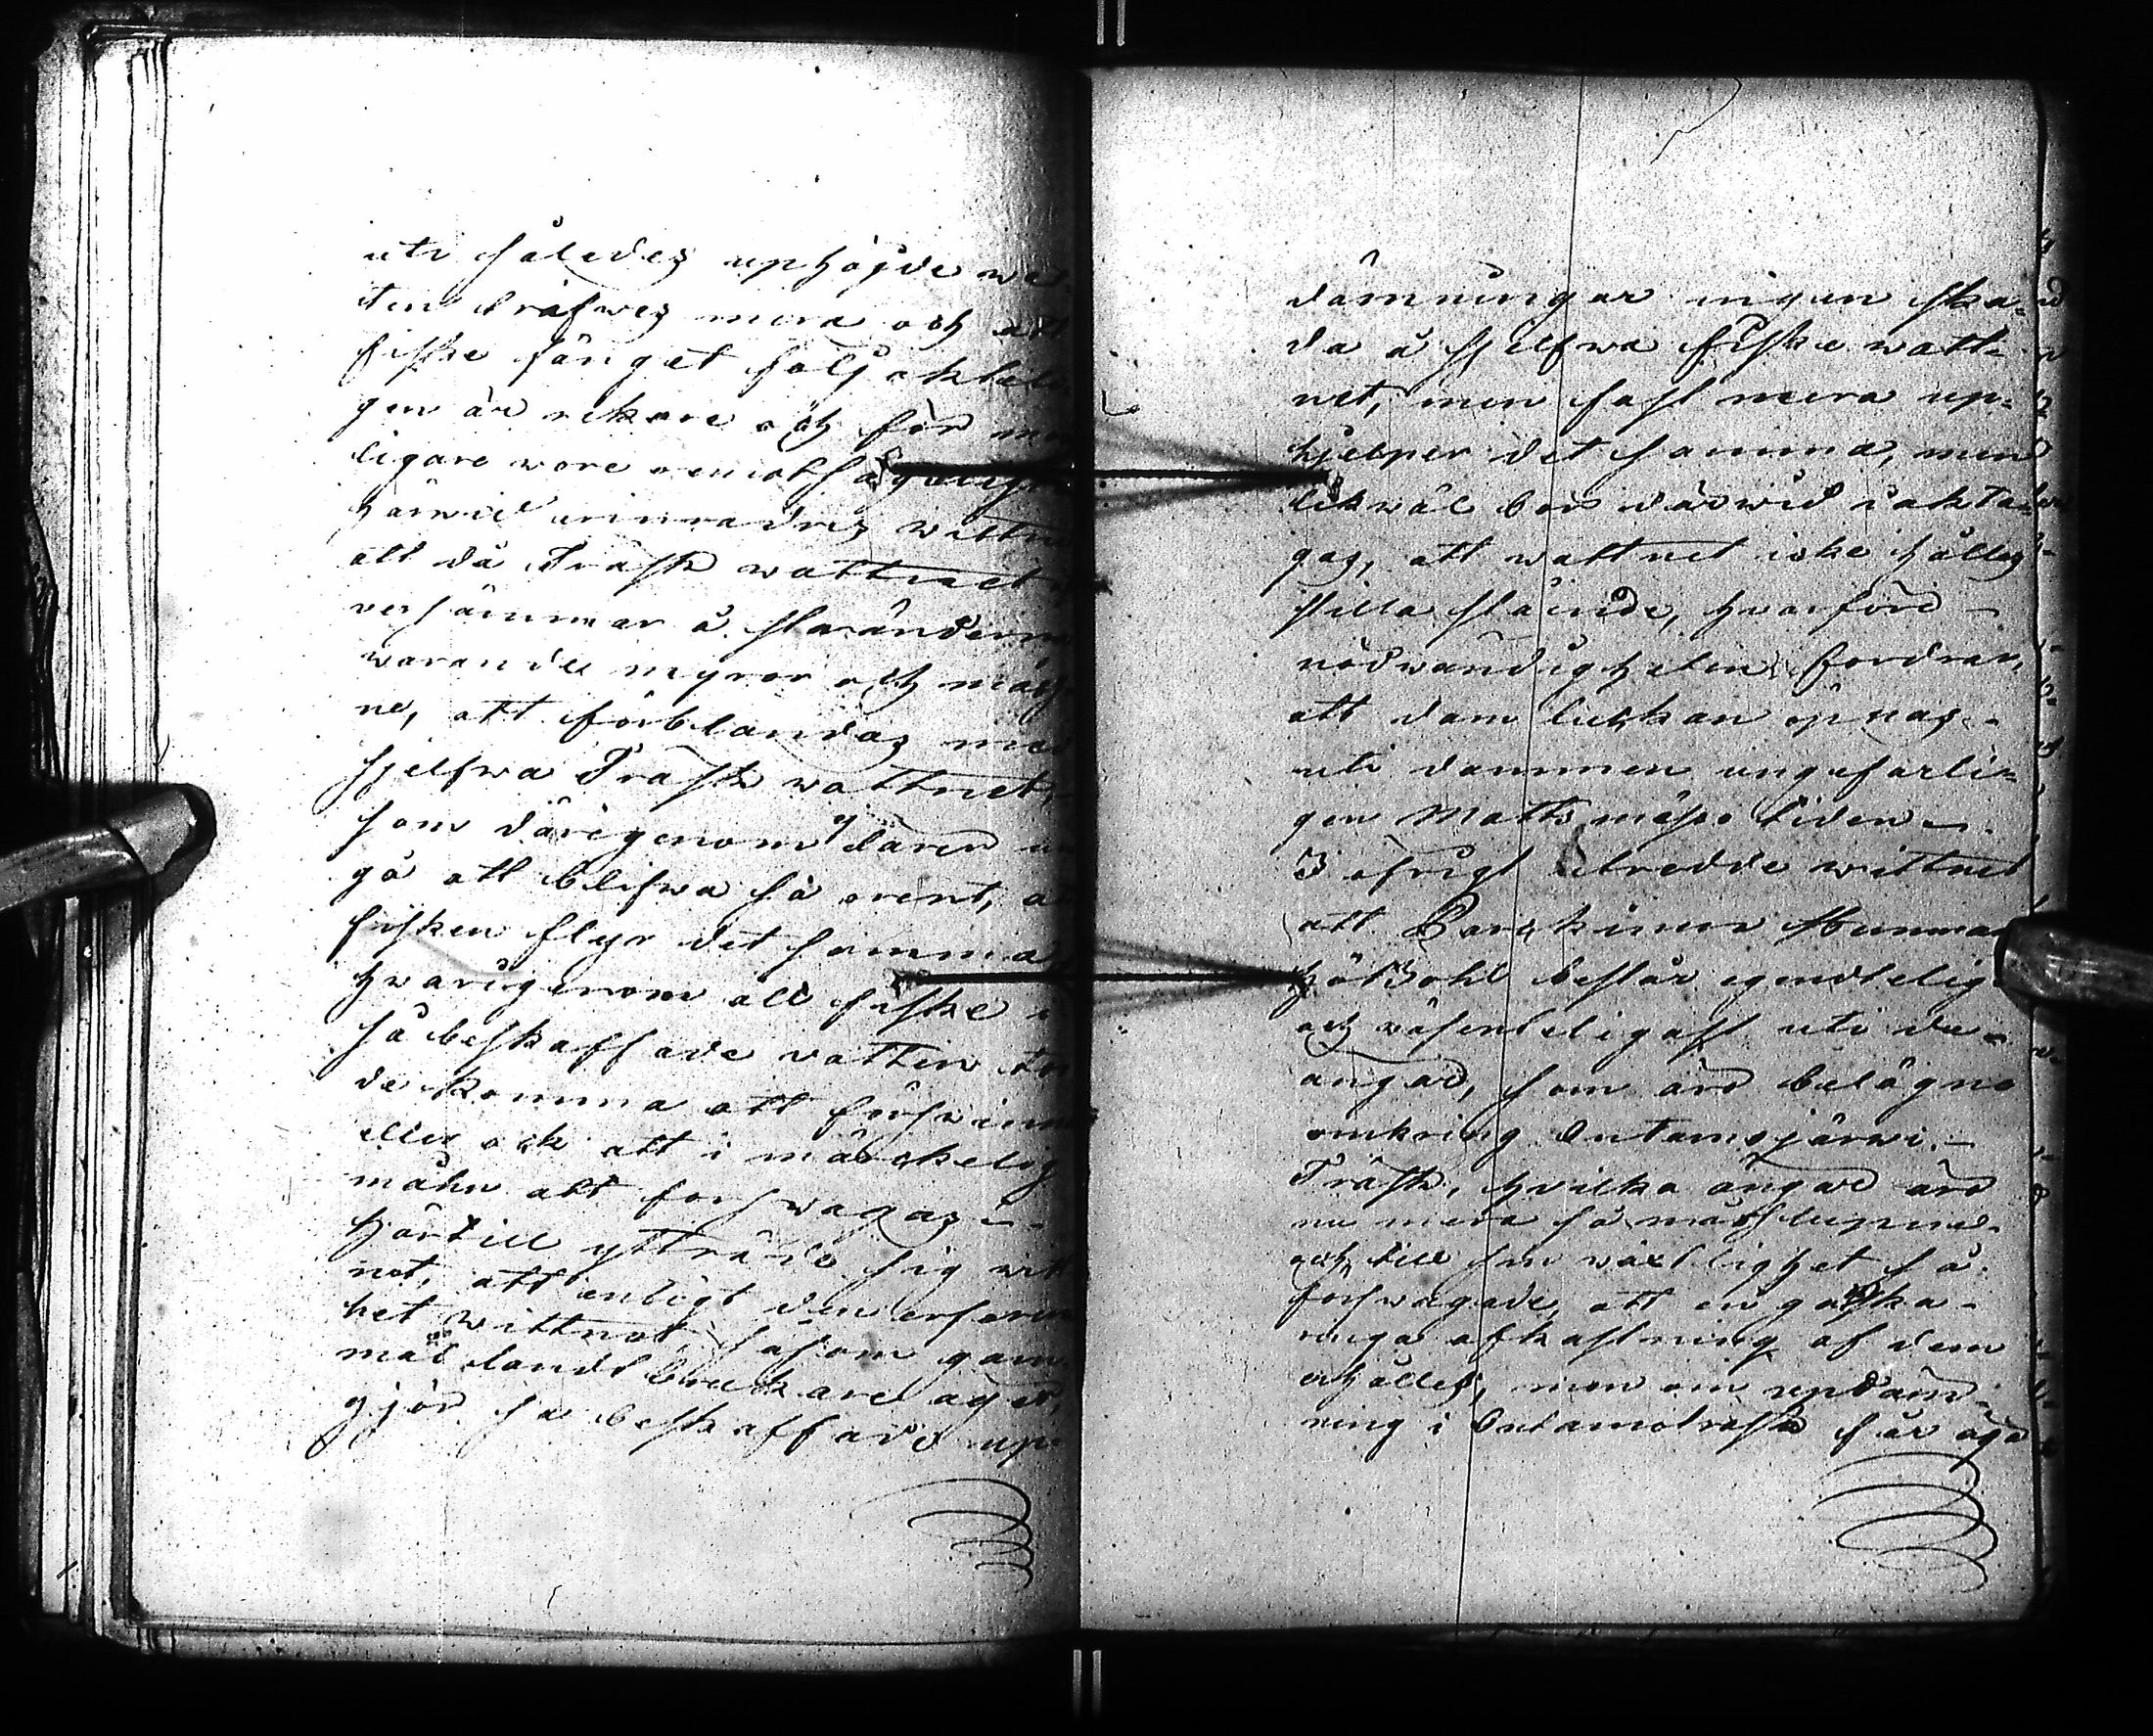 uti således uphögde wa
ten träfwes mera och att
fiske fånget följaktel
gen är rikare och för
ligare wore
härwid unnadres wittne
att då Träsk wattnet
versämmar å stränderna
warande myror och
ne, att förblandas med
sjelfwa Träsk wattnet,
som därigenom
gå att blifwa så orent, a
fisken flyr det samma
hwarigenom all fiske i
så beskaffade vatten
de komma att förswin
eller ock att i märckelig
måhn att forswagas.-
Härtill yttrade sig wit
net, att enligt den erfaren
het wittnet såsom gam
mal landtbruckare äger,
gjör så beskaffade up
dämningar ingen ska-
da å sjelfwa fiske watt-
net, men fast mera up-
hjelper det samma, men
likwäl bör därwid iakta-
gas, att wattnet icke hålles
stilla stående, hvarföre -
nödwändigheten fordrar,
att dam luckan öpnas -
uti dammen ungefärli-
gen Mattsmässo tiden -
I öfrigt utredde wittnet
att Barckimo Hemman
Höbohl består egendtelig
och wäsendteligast uti de -
ängar, som äro belägne
omkring Ontamojärwi -
Träsk, hvilka ängar äro
nu mera så måsslupne -
och till sin wäxtlighet så
forswagade, att en ganska -
ringa afkastning af dem
erhålles, men om updäm-
ning i Ontamoträsk får äga